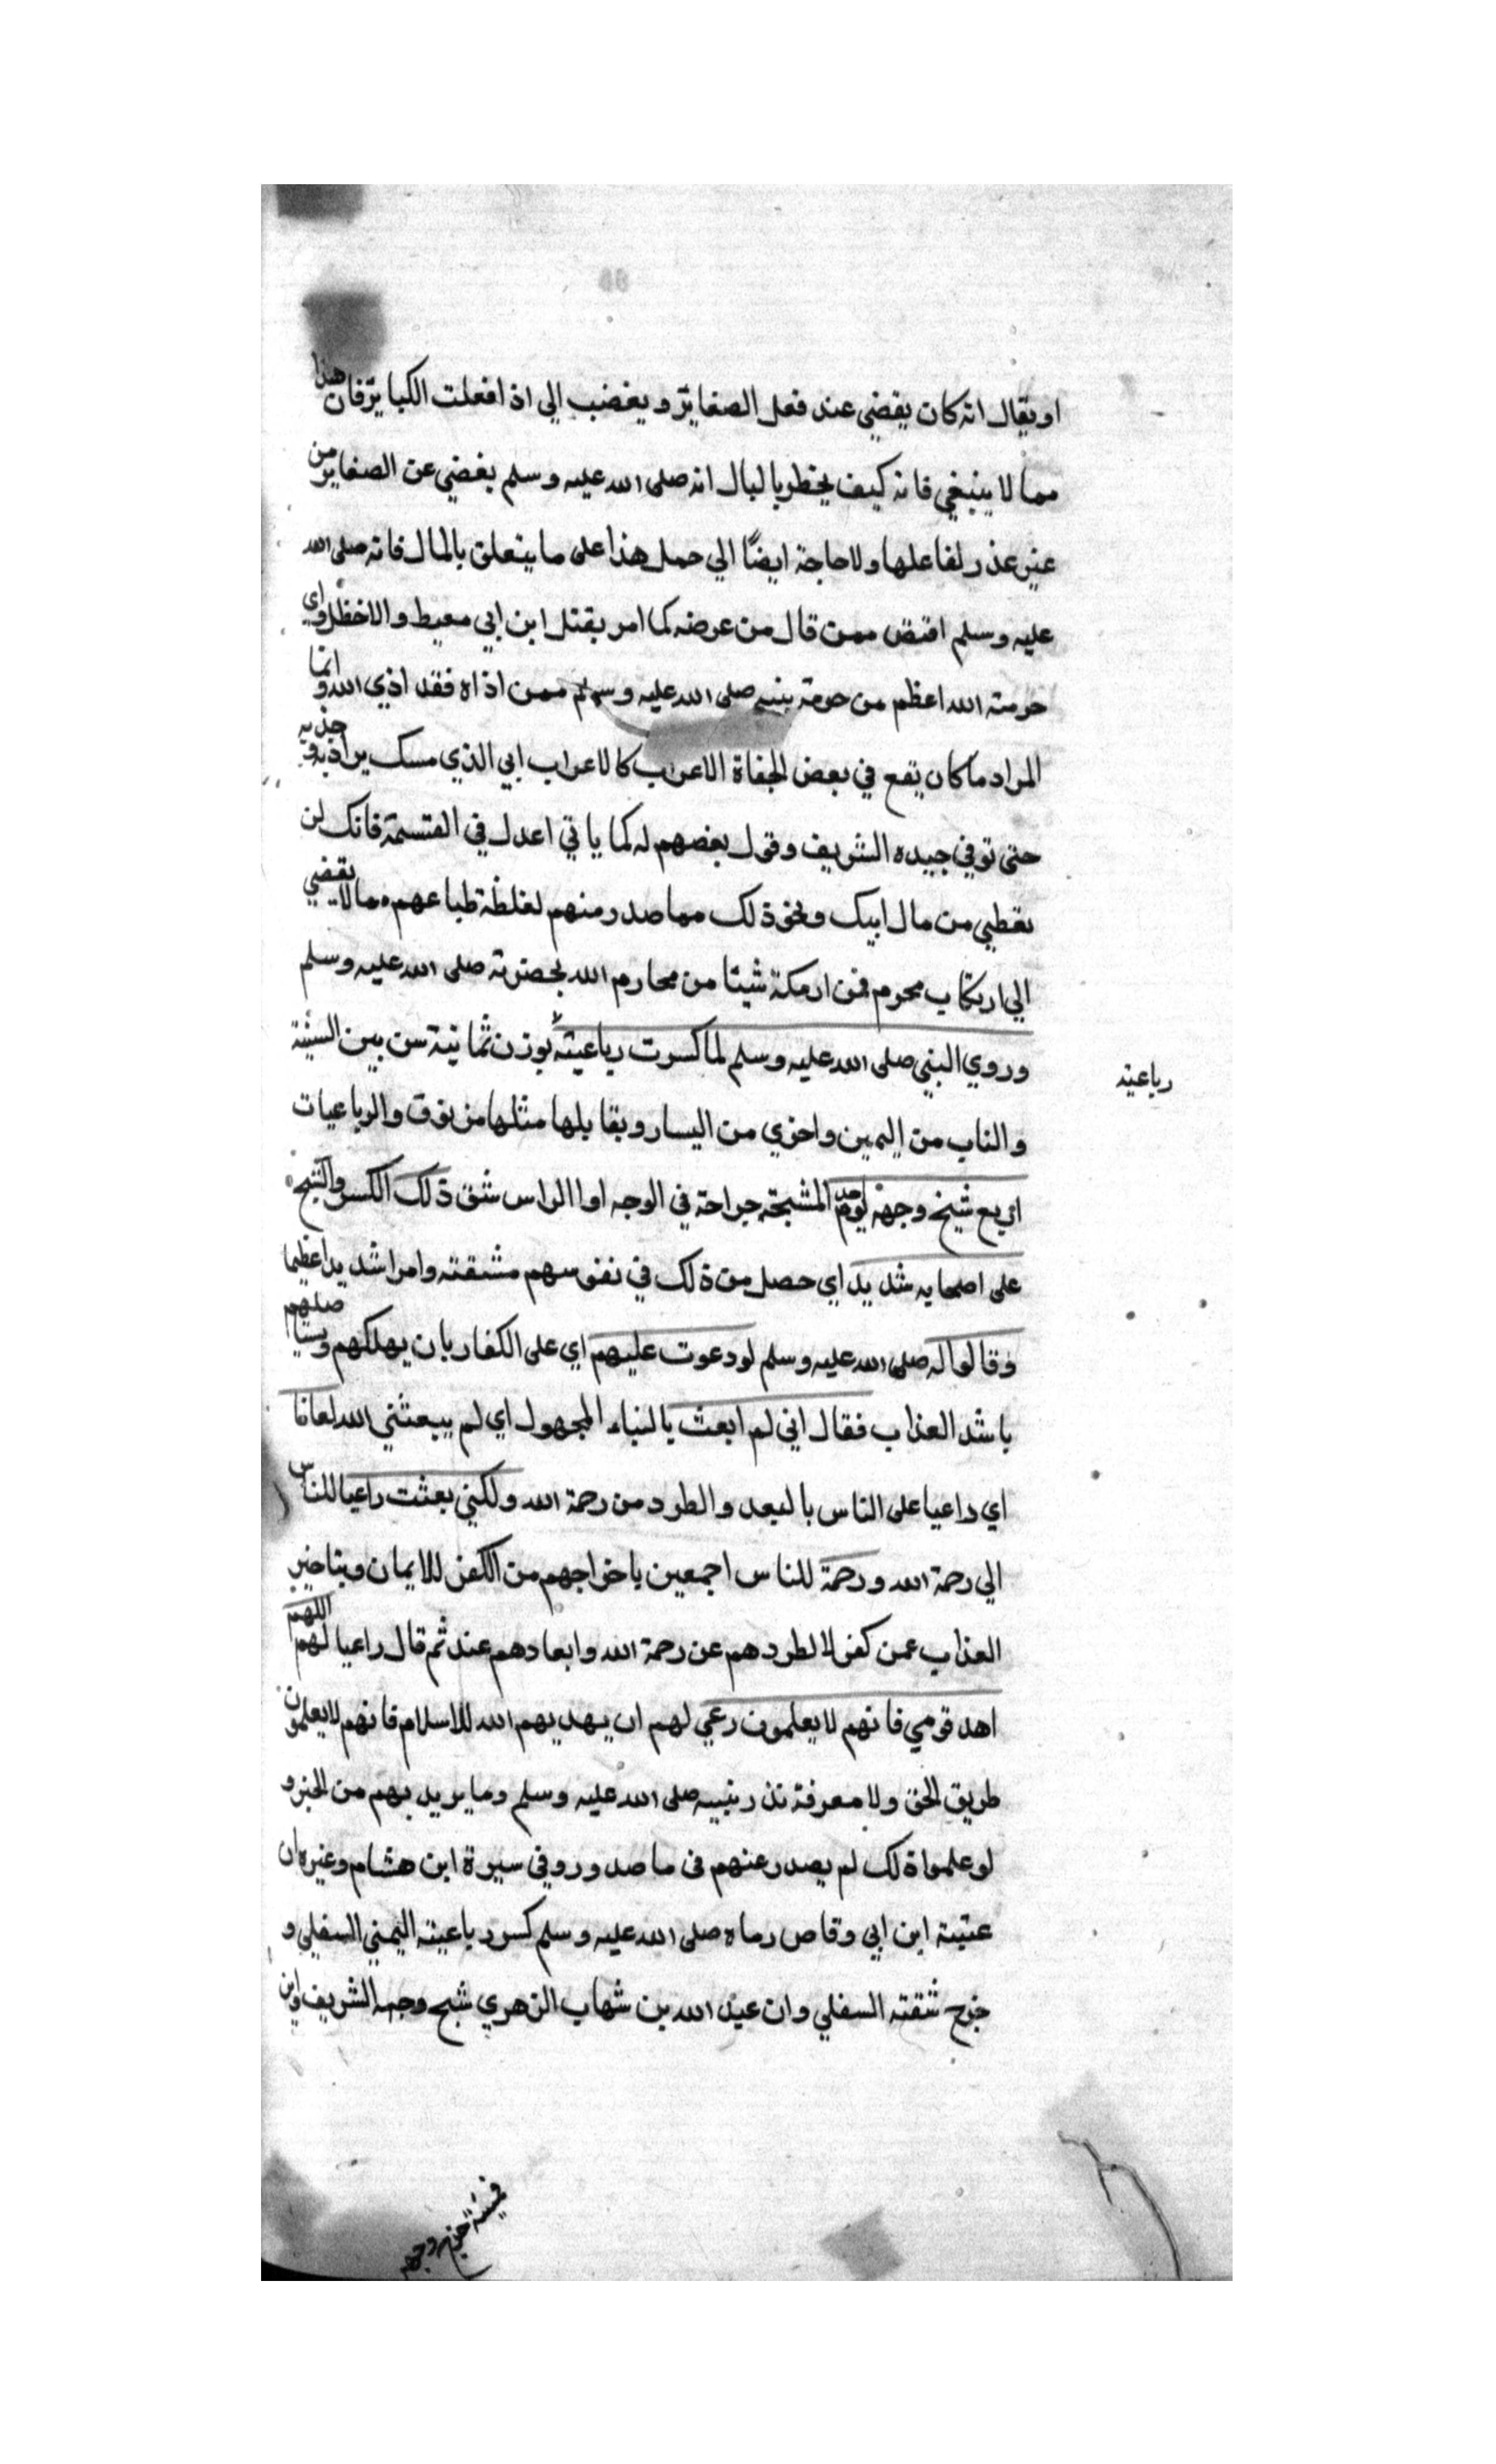 او يقال انه كان يغضي عند فعل الصغاير ويغضب الي اذ افعلت الكباير فان هذا
مما لا ينبغي فانه كيف يخطر بالبال انه صلى الله عليه وسلم يغضي عن الصغاير من
غير عذر لفاعلها ولا حاجة ايضًا الي حمل هذا على ما يتعلق بالمال فانه صلى الله
عليه وسلم اقتض ممن قال من عرضه كما امر بقتل ابن ابي معيط والاخظل واي
حرمته الله اعظم من حرمة بنيه صلى الله عليه وسلم ممن اذاه فقد اذي الله وانما
المراد ما كان يقع في بعض الجفاة الاعراب كالاعراب ابي الذي مسك يراديه وجذبه
حتى توفي جيده الشريف وقول بعضهم له كما ياتي اعدل في القسمة فانك لن
تعطيي من مال ابيك ونحو ذلك مما صدر منهم لغلظة طباعهم مما لا يقضي
الي ارتكاب محرم فمن ارمكة شيئا من محارم الله بحضرته صلى الله عليه وسلم
وروي النبي صلى الله عليه وسلم لما كسرت رباعيته بوزن ثمانية سن بين السنية
رباعيته
والناب من اليمين واخري من اليسار ويقابلها مثلها من فوق والرباعيات
اربع شيخ وجهه يوم احد المشبحة جراحة في الوجه او الراس شق ذلك الكسر والشبح
على اصحابه شديد اي حصل من ذلك في نفوسهم مشقته وامرا شديدا عظيما
وقالوا له صلى الله عليه وسلم لو دعوت عليهم اي على الكفار بان يهلكهم ويستاصلهم
باشد العذاب فقال اني لم ابعث بالبناء المجهول اي لم يبعثني الله لعانا
اي داعيا على الناس بالبعد والطرد من رحمة الله ولكني بعثت راعيا للناس
الي رحمة الله ورحمة للناس اجمعين باخراجهم من الكفر للايمان وبتاخير
العذاب عمن كفر لا لطردهم عن رحمة الله وابعادهم عنه ثم قال راعيا لهم اللهم
اهد قومي فانهم لا يعلمون رعي لهم ان يهديهم الله للاسلام فانهم لا يعلمون
طريق الحق ولا معرفة نذر بنيه صلى الله عليه وسلم وما يريد بهم من الخير و
لو علموا ذلك لم يصدر عنهم في ما صدر وروفي سيرة ابن هشام وغيره ان
عتبة ابن ابي وقاص رماه صلى الله عليه وسلم كسر رباعيته اليمني السفلي و
جرح شقته السفلي وان عبد الله بن شهاب الزهري شبح وجهه الشريف وابن
قميئة جرح وجهه